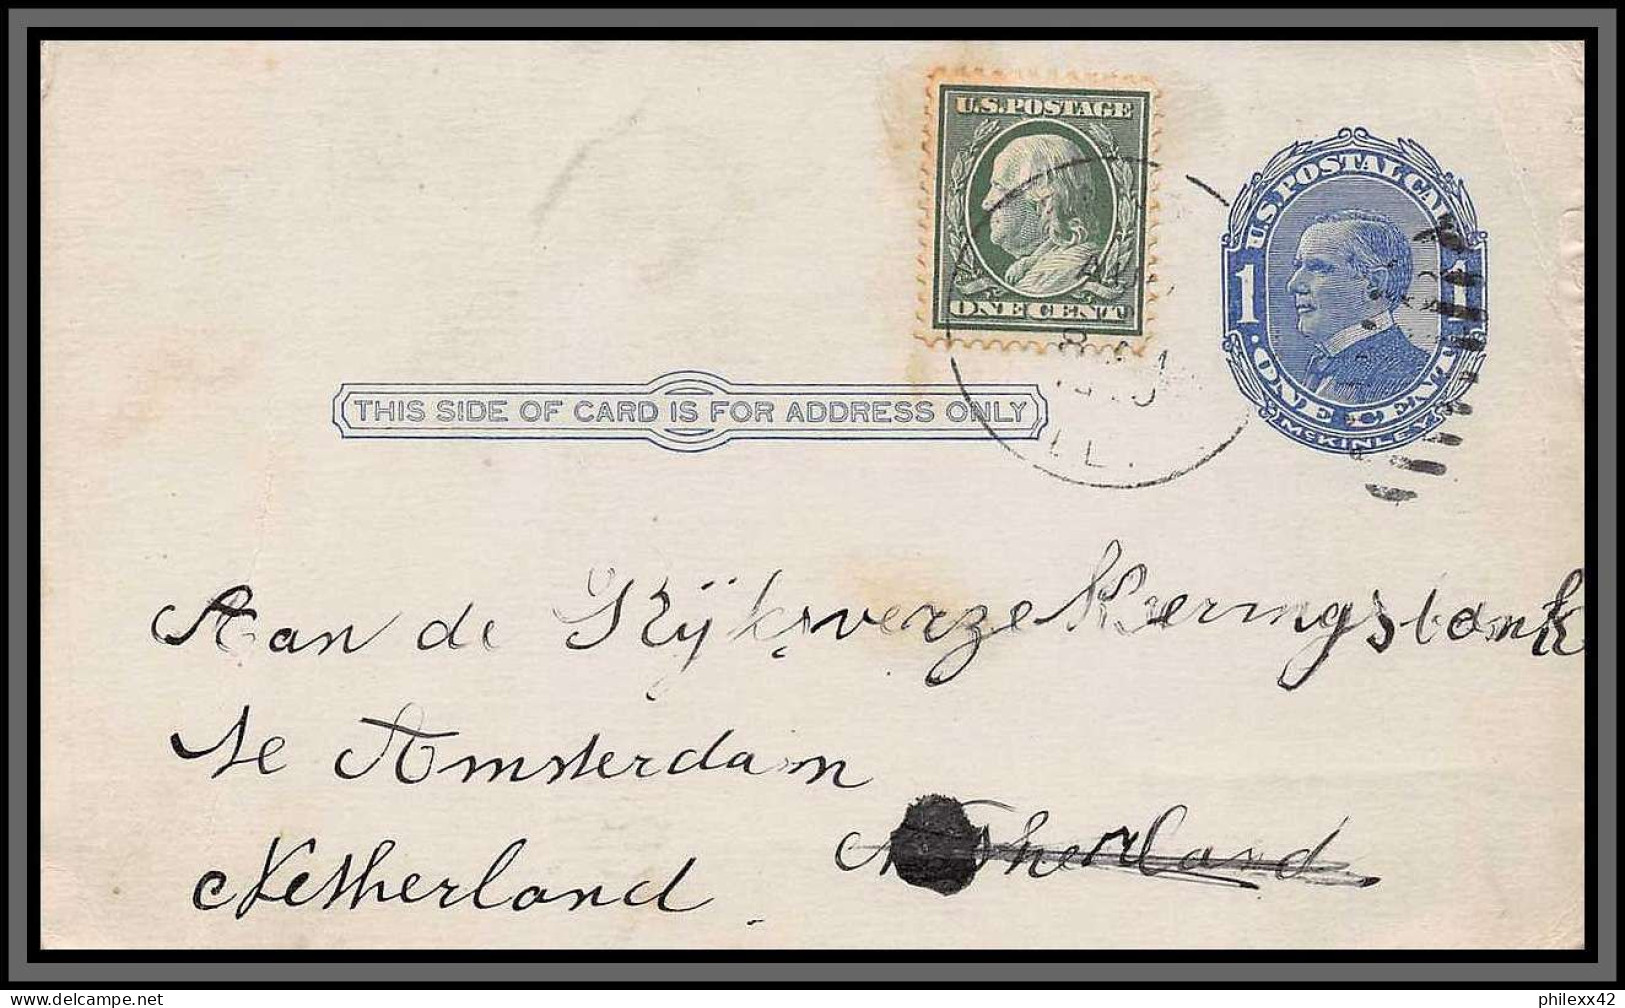 U.S.POSTAGE
ONE CENT
U.S. POSTAL CARD
1 1
·ONE CENT·
McKINLEY
THIS SIDE OF CARD IS FOR ADDRESS ONLY
AUG
8
ILL.
Aan de Rijksverzekeringsbank
te Amsterdam
Netherland
Netherland
philexx42